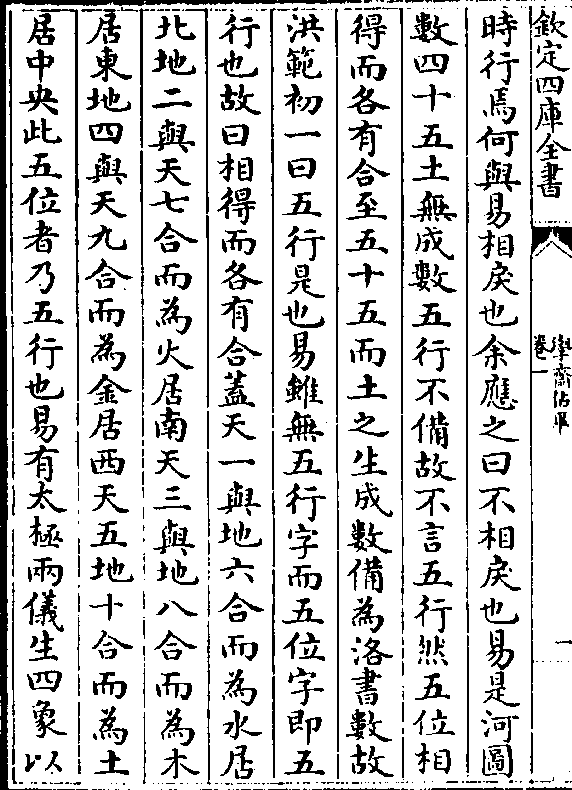 欽定四庫全書
學齋佔畢
卷一
一
時行焉何與易相戾也余應之曰不相戾也易是河圖
數四十五土無成數五行不備故不言五行然五位相
得而各有合至五十五而土之生成數備為洛書數故
洪範初一曰五行是也易雖無五行字而五位字即五
行也故曰相得而各有合蓋天一與地六合而為水居
北地二與天七合而為火居南天三與地八合而為木
居東地四與天九合而為金居西天五地十合而為土
居中央此五位者乃五行也易有太極兩儀生四象以